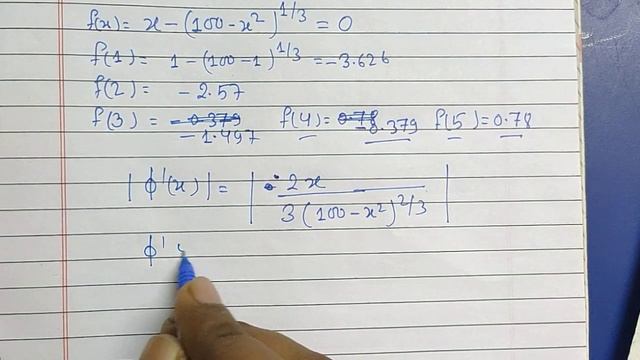 f(x) = x - (100 - x²)^1/3 = 0
f(1) = 1 - (100 - 1)^1/3 = -3.626
f(2) = -2.57
f(3) = -0.379 -1.497 f(4) = 0.78 -0.379 f(5) = 0.78
|ϕ'(x)| = |2x / 3(100 - x²)^2/3|
ϕ'